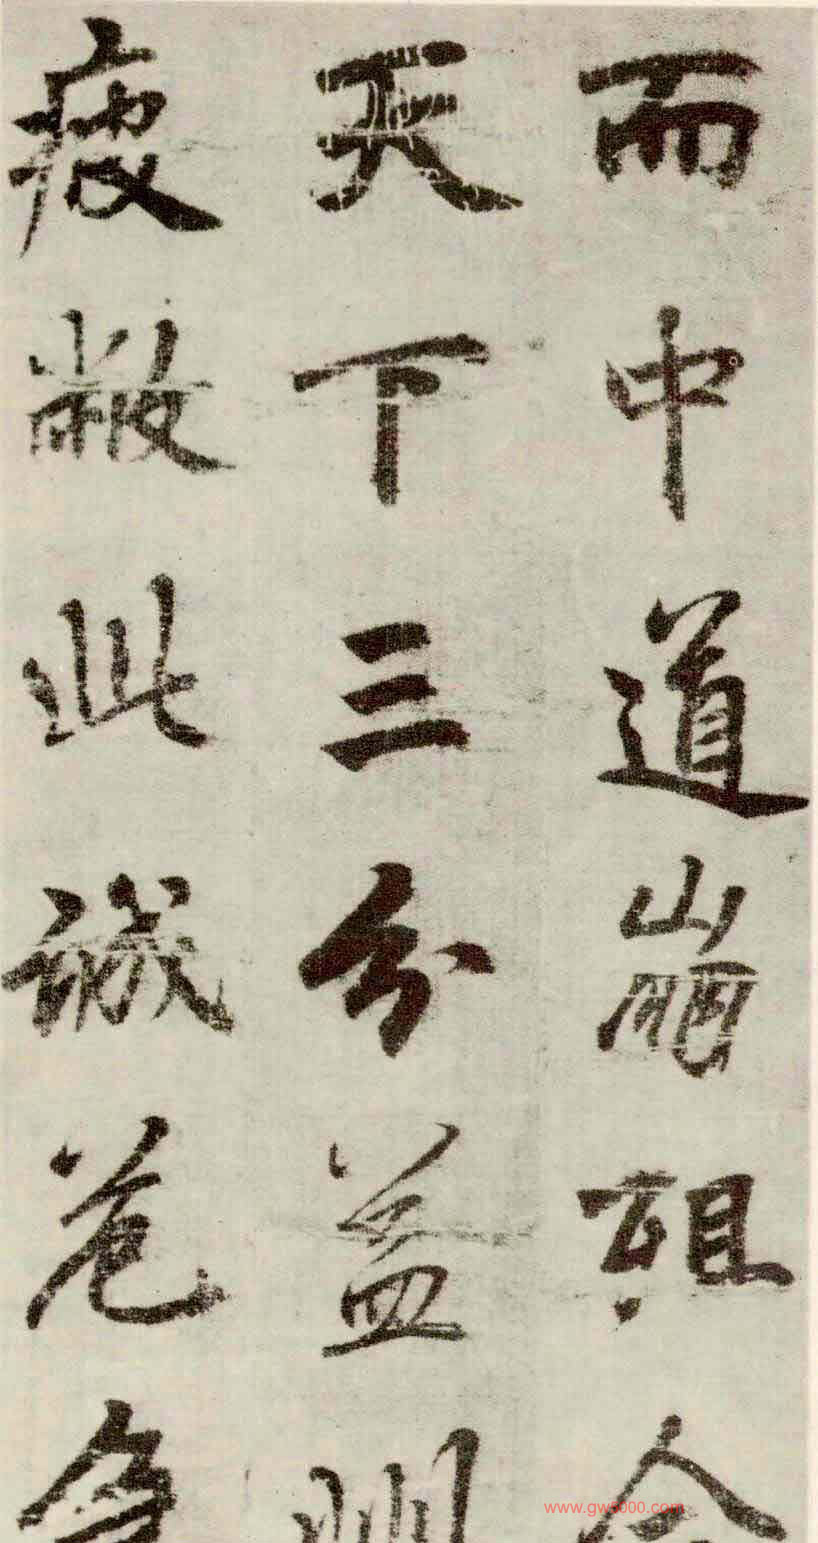 而中道崩殂今
天下三分益州
疲敝此誠危急
www.gw5000.com